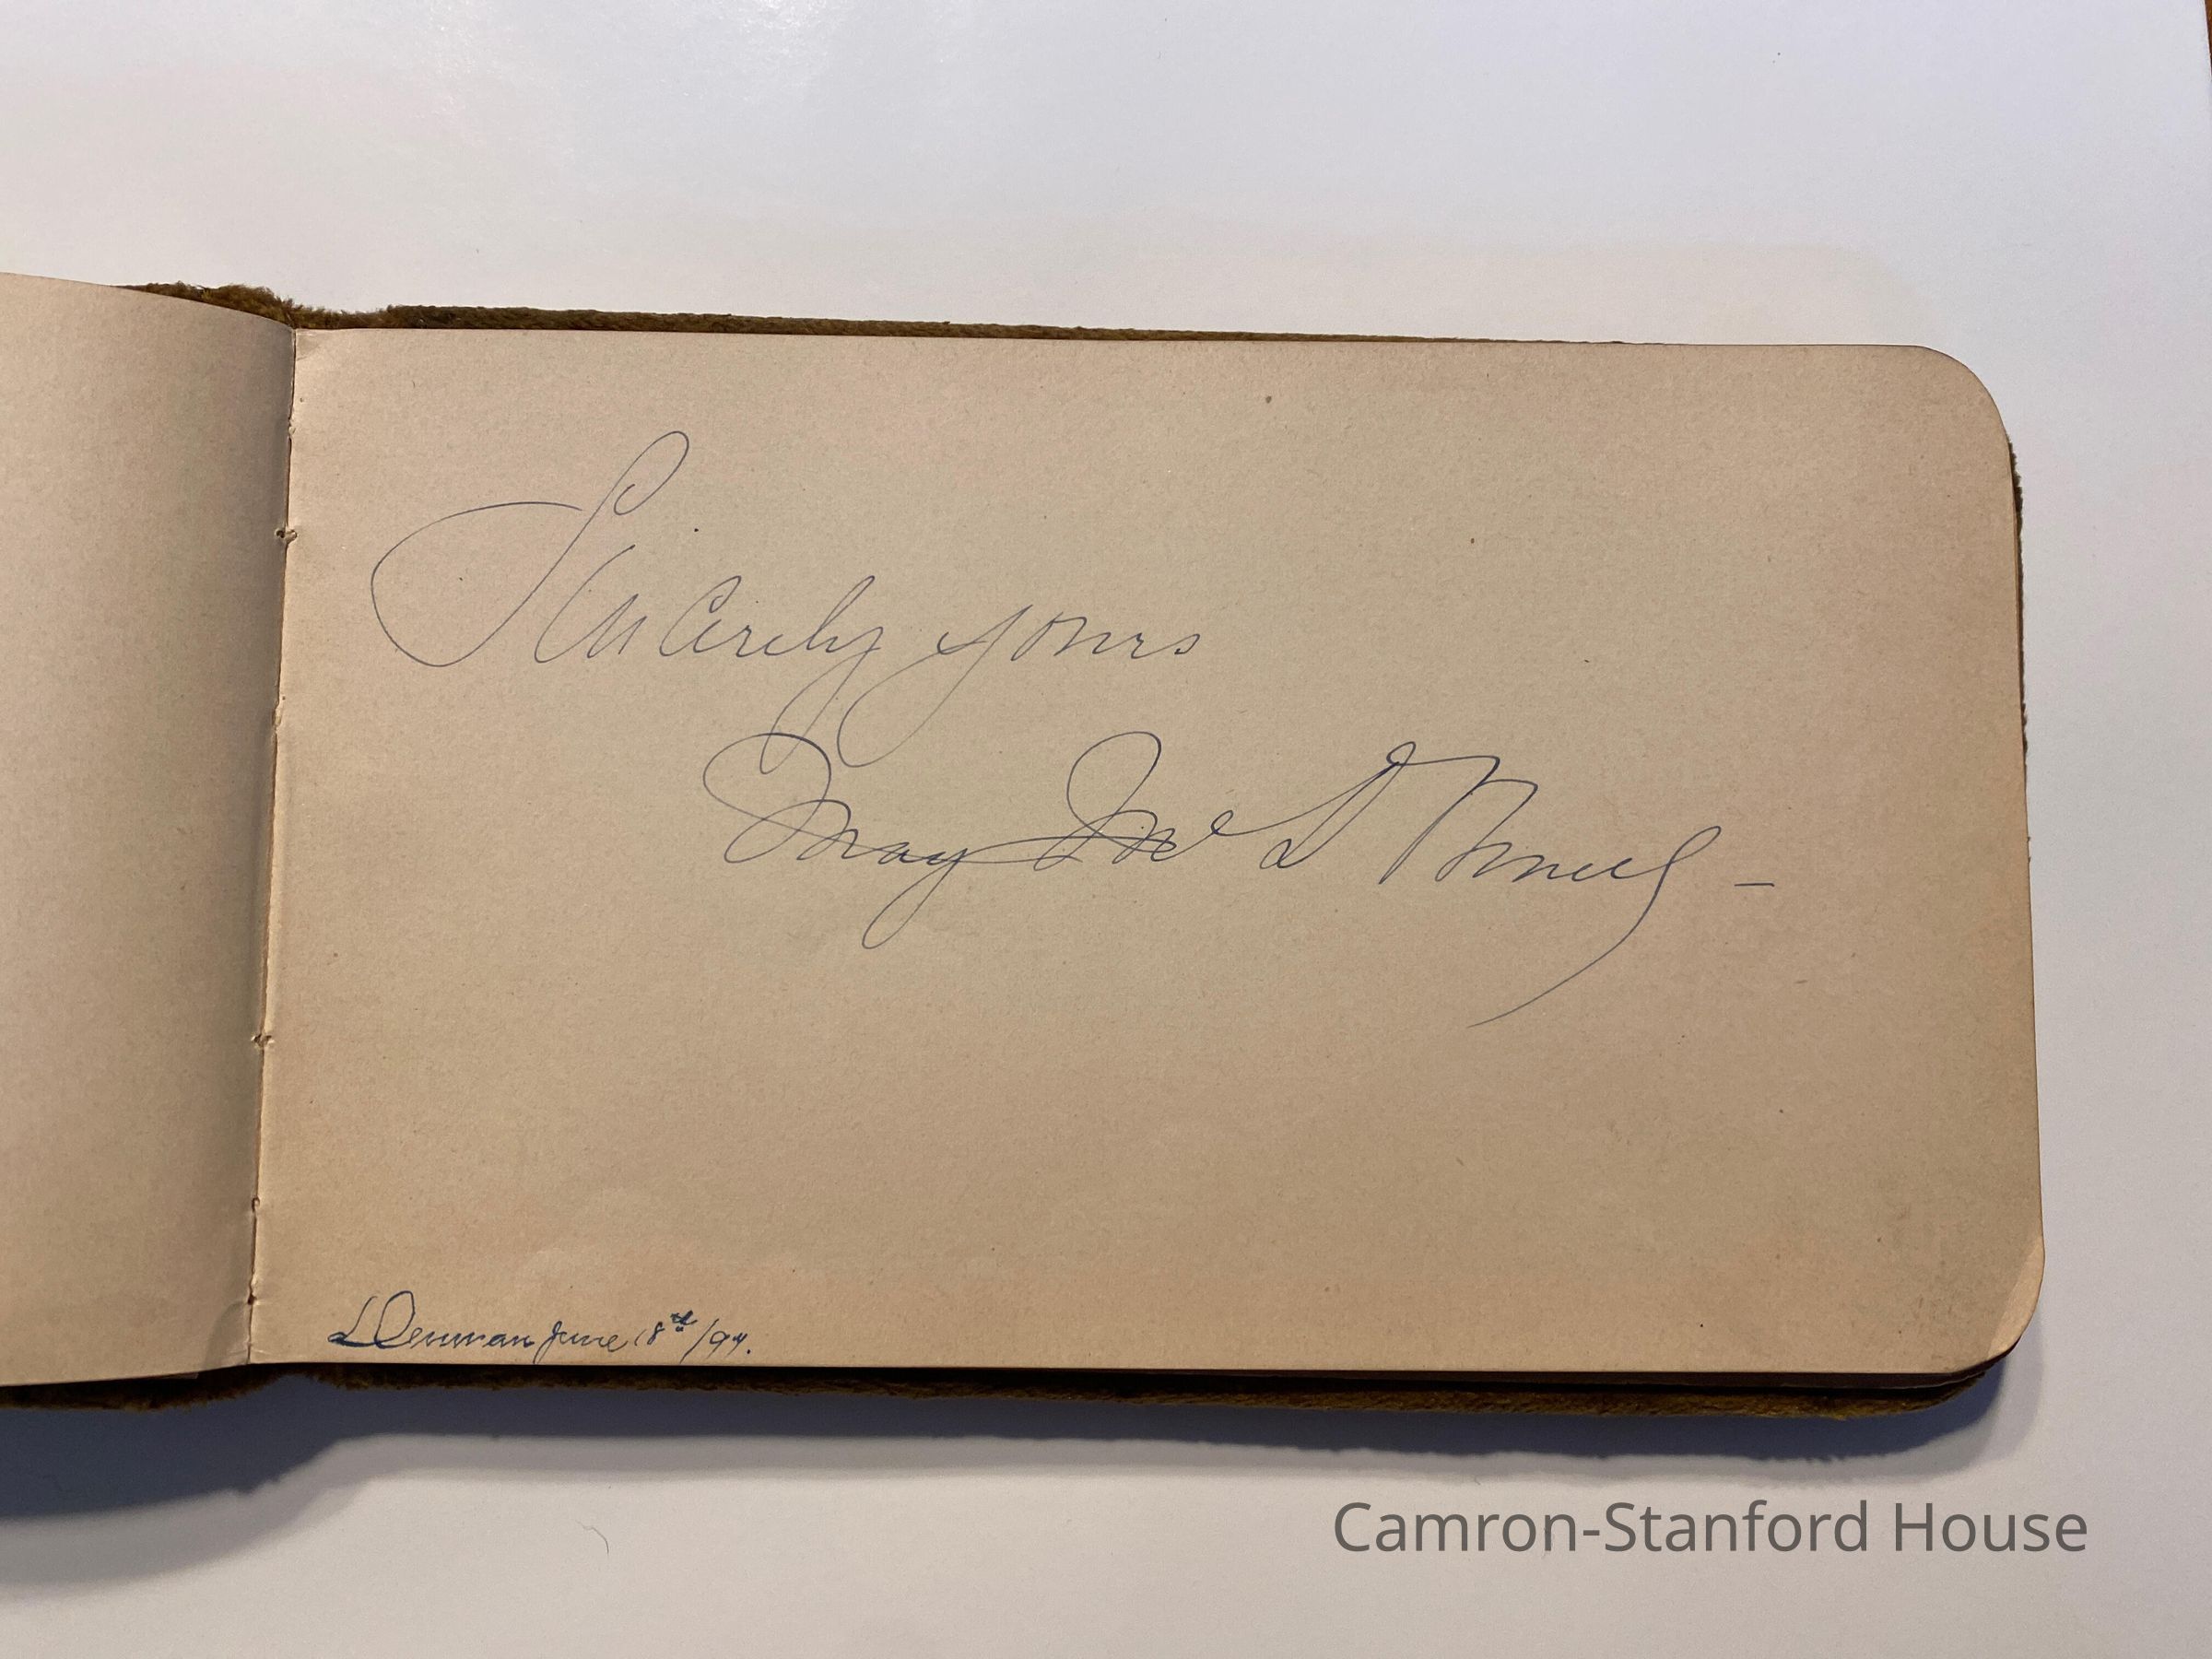 Sincerely yours
May Mc D
L Denman June 18th/94.
Camron-Stanford House